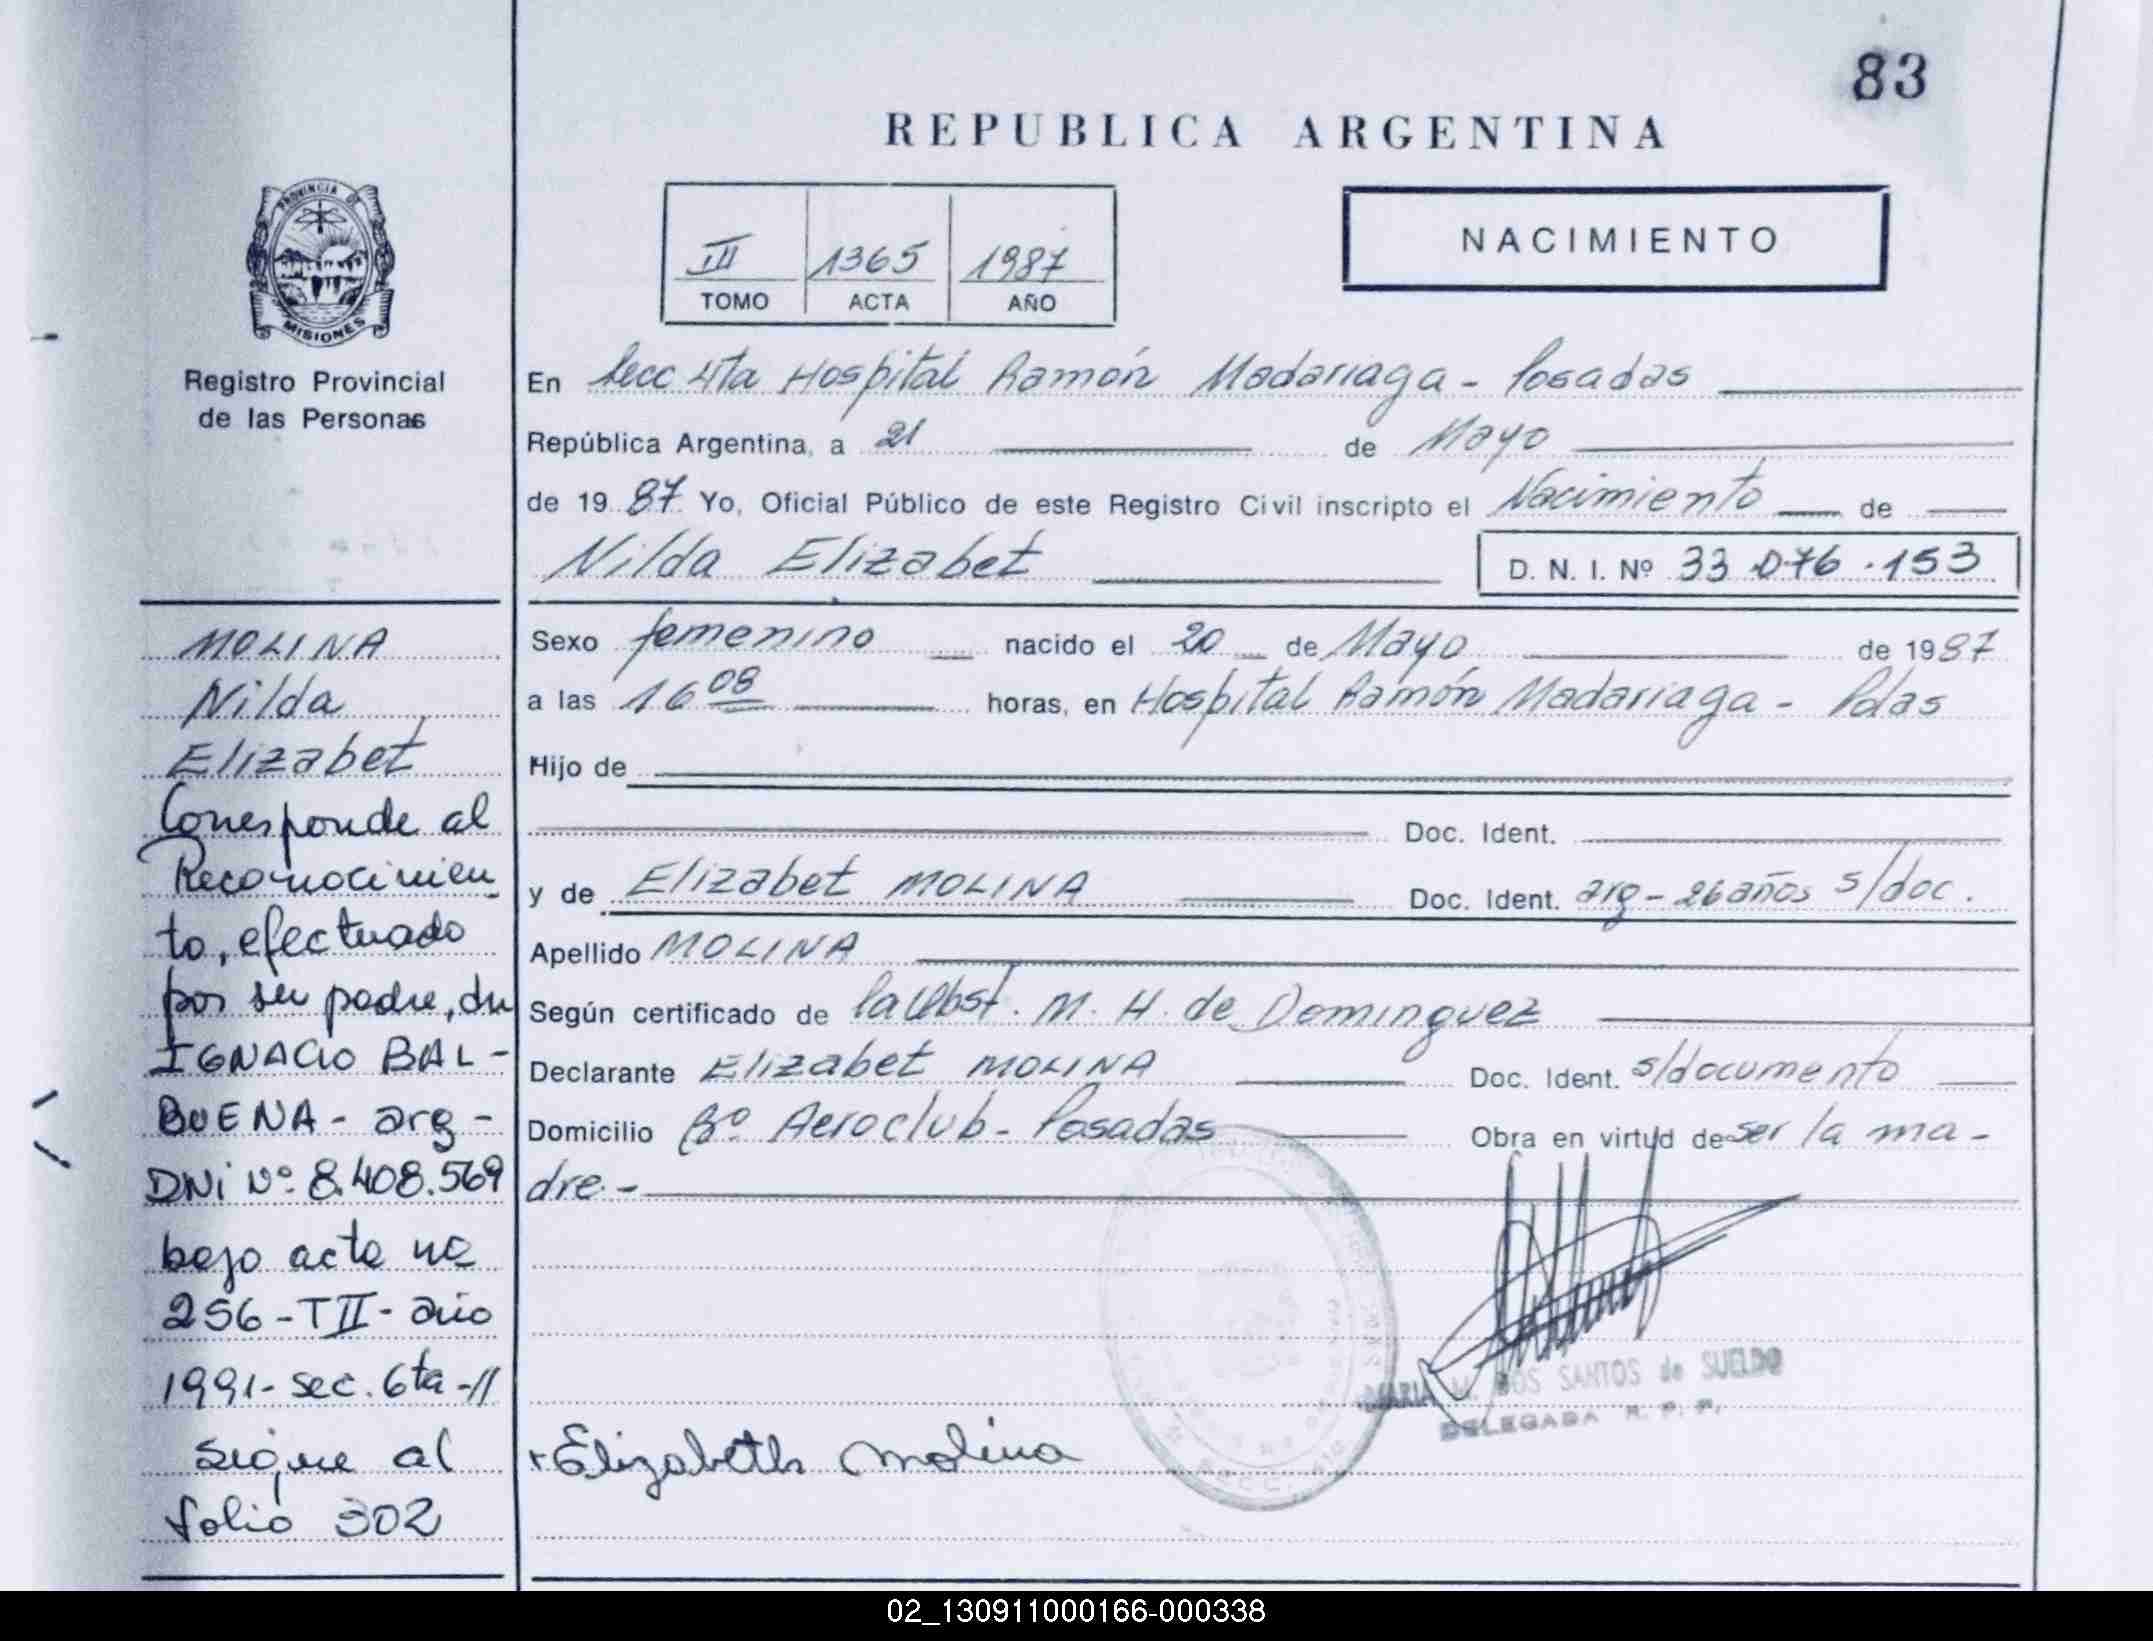 83
REPUBLICA ARGENTINA
NACIMIENTO
III 1365 1987
TOMO ACTA AÑO
PROVINCIA DE
MISIONES
Registro Provincial
de las Personas
En Secc 4ta Hospital Ramón Madariaga - Posadas
República Argentina, a 21 de Mayo
de 1987 Yo, Oficial Público de este Registro Civil inscripto el Nacimiento de
Nilda Elizabet D. N. I. Nº 33.076.153
Sexo femenino nacido el 20 de Mayo de 1987
a las 16 08 horas, en Hospital Ramón Madariaga - Pdas
Hijo de
Doc. Ident.
y de Elizabet MOLINA Doc. Ident. arg - 26 años s/doc.
Apellido MOLINA
Según certificado de la Obst. M. H. de Dominguez
Declarante Elizabet MOLINA Doc. Ident. s/documento
Domicilio Bº Aeroclub - Posadas Obra en virtud de ser la ma-
dre.-
MARIA M. DOS SANTOS de SUELDO
DELEGADA R. P. P.
Elizabeth Molina
MOLINA
Nilda
Elizabet
Corresponde al
Reconocimien
to, efectuado
por su padre, dn
IGNACIO BAL-
BUENA - arg -
DNi Nº 8.408.569
bajo acta nº
256 - T II - año
1991 - sec. 6ta -//
sigue al
folio 302
02_130911000166-000338